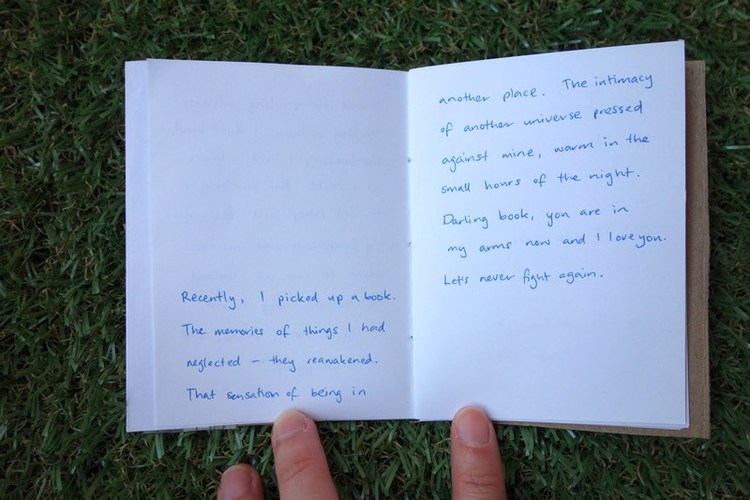 Recently, I picked up a book.
The memories of things I had
neglected – they reawakened.
That sensation of being in
another place. The intimacy
of another universe pressed
against mine, warm in the
small hours of the night.
Darling book, you are in
my arms now and I love you.
Let's never fight again.